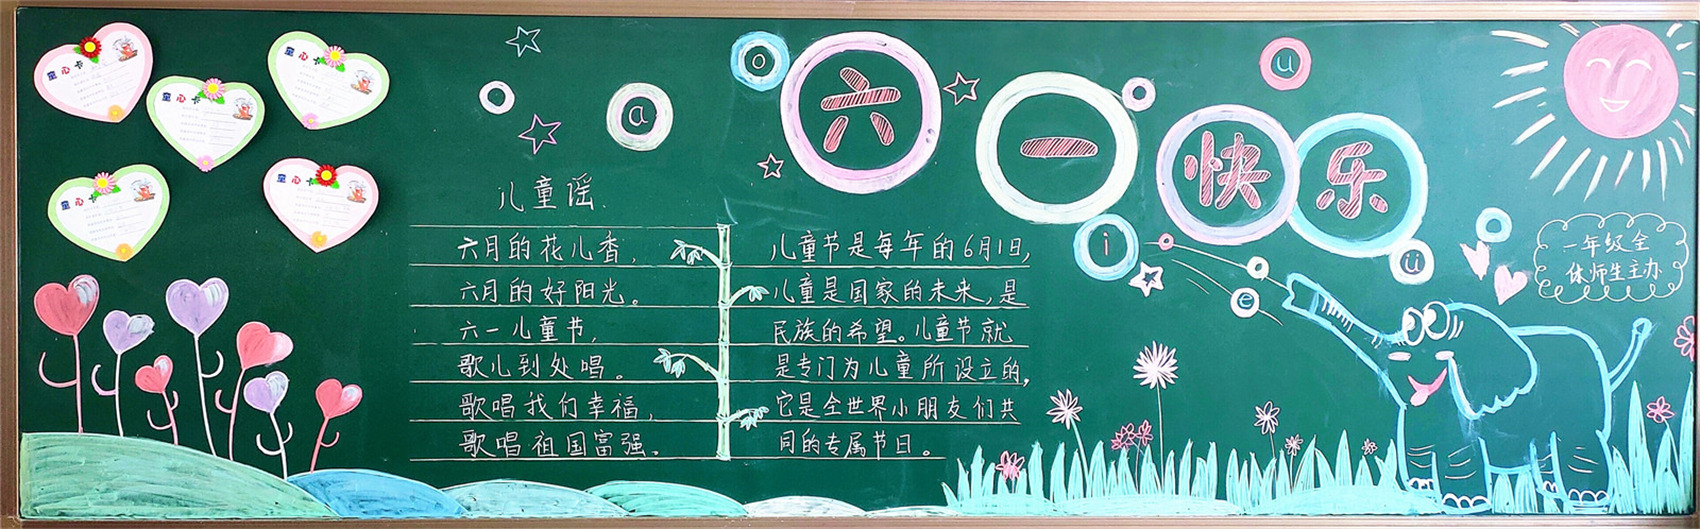 童心卡
童心卡
童心卡
童心卡
童心卡
o
a
u
六一快乐
i
e
ü
一年级全
体师生主办
儿童谣
六月的花儿香,
六月的好阳光。
六一儿童节,
歌儿到处唱。
歌唱我们幸福,
歌唱祖国富强。
儿童节是每年的6月1日,
儿童是国家的未来,是
民族的希望。儿童节就
是专门为儿童所设立的,
它是全世界小朋友们共
同的专属节日。